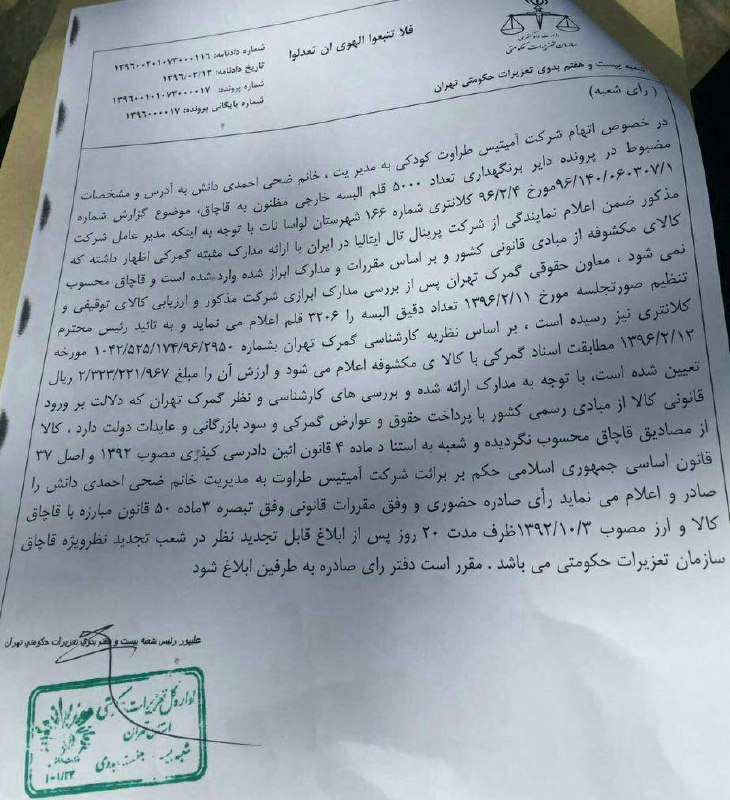 فلا تتبعوا الهوی ان تعدلوا
سازمان تعزیرات حکومتی
شماره دادنامه: ۱۳۹۶۰۰۲۰۱۰۷۳۰۰۰۱۱۶
تاریخ دادنامه: ۱۳۹۶/۰۲/۱۳
شماره پرونده: ۱۳۹۶۰۰۱۰۱۰۷۳۰۰۰۰۱۷
شماره بایگانی پرونده: ۱۳۹۶۰۰۰۰۱۷
شعبه بیست و هفتم بدوی تعزیرات حکومتی تهران
( رأی شعبه)
در خصوص اتهام شرکت آمیتیس طراوت کودکی به مدیریت ، خانم ضحی احمدی دانش به آدرس و مشخصات
مضبوط در پرونده دایر برنگهداری تعداد ۵۰۰۰ قلم البسه خارجی مظنون به قاچاق، موضوع گزارش شماره
۹۶/۱۴۰/۰۶۰۳۰۷/۱مورخ ۹۶/۲/۴ کلانتری شماره ۱۶۶ شهرستان لواسا نات با توجه به اینکه مدیر عامل شرکت
مذکور ضمن اعلام نمایندگی از شرکت پرینال تال ایتالیا در ایران با ارائه مدارک مثبته گمرکی اظهار داشته که
کالای مکشوفه از مبادی قانونی کشور و بر اساس مقررات و مدارک ابراز شده وارد شده است و قاچاق محسوب
نمی شود ، معاون حقوقی گمرک تهران پس از بررسی مدارک ابرازی شرکت مذکور و ارزیابی کالای توقیفی و
تنظیم صورتجلسه مورخ ۱۳۹۶/۲/۱۱ تعداد دقیق البسه را ۳۲۰۶ قلم اعلام می نماید و به تائید رئیس محترم
کلانتری نیز رسیده است ، بر اساس نظریه کارشناسی گمرک تهران بشماره ۱۰۴۲/۵۲۵/۱۷۴/۹۶/۲۹۵۰ مورخه
۱۳۹۶/۲/۱۲ مطابقت اسناد گمرکی با کالا ی مکشوفه اعلام می شود و ارزش آن را مبلغ ۲/۳۲۳/۲۲۱/۹۶۷ ریال
تعیین شده است، با توجه به مدارک ارائه شده و بررسی های کارشناسی و نظر گمرک تهران که دلالت بر ورود
قانونی کالا از مبادی رسمی کشور با پرداخت حقوق و عوارض گمرکی و سود بازرگانی و عایدات دولت دارد ، کالا
از مصادیق قاچاق محسوب نگردیده و شعبه به استنا د ماده ۴ قانون ائین دادرسی کیفری مصوب ۱۳۹۲ و اصل ۳۷
قانون اساسی جمهوری اسلامی حکم بر برائت شرکت آمیتیس طراوت به مدیریت خانم ضحی احمدی دانش را
صادر و اعلام می نماید رأی صادره حضوری و وفق مقررات قانونی وفق تبصره ۳ماده ۵۰ قانون مبارزه با قاچاق
کالا و ارز مصوب ۱۳۹۲/۱۰/۳ظرف مدت ۲۰ روز پس از ابلاغ قابل تجدید نظر در شعب تجدید نظرویژه قاچاق
سازمان تعزیرات حکومتی می باشد . مقرر است دفتر رای صادره به طرفین ابلاغ شود
علیپور رئیس شعبه بیست و هفتم بدوی تعزیرات حکومتی تهران
اداره کل تعزیرات حکومتی
استان تهران
شعبه بیست و هفتم بدوی
۱۰۱/۲۲